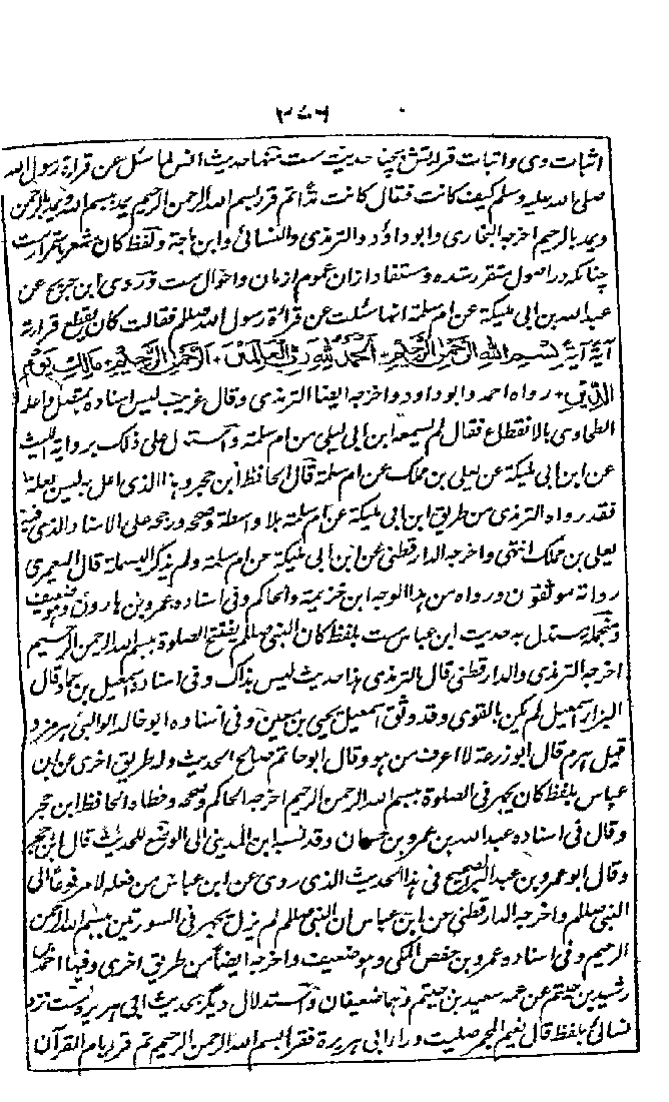 ۳۷۶
اثبات وی و اثبات قرائتش بچند حدیث ست منها حدیث انس لما سئل عن قراءة رسول الله
صلی الله علیه وسلم کیف کانت فقال کانت مدا ثم قرء بسم الله الرحمن الرحیم یمد بسم الله ویمد بالرحمن
ویمد بالرحیم اخرجه البخاری وابو داؤد والترمذی والنسائی وابن ماجة ولفظ کان مشعر باستمرار ست
چنانکه در اصول متقرر شده ومستفاد ازان عموم ازمان واحوال ست وروی ابن جریج عن
عبد الله بن ابی ملیکة عن ام سلمة انها سئلت عن قراءة رسول الله صلعم فقالت کان یقطع قراءته
آیة آیة بسم الله الرحمن الرحیم الحمد لله رب العالمین الرحمن الرحیم مالک یوم
الدین رواه احمد وابو داود واخرجه ایضا الترمذی وقال غریب لیس اسناده بمتصل واعله
الطحاوی بالانقطاع فقال لم یسمعه ابن ابی ملیکة من ام سلمة واستدل علی ذلک بروایة اللیث
عن ابن ابی ملیکة عن یعلی بن مملک عن ام سلمة قال الحافظ ابن حجر وهذا الذی اعل به لیس بعلة
فقد رواه الترمذی من طریق ابن ابی ملیکة عن ام سلمة بلا واسطة وصححه ورجحه علی الاسناد الذی فیه
یعلی بن مملک انتهی واخرجه الدارقطنی عن ابن ابی ملیکة عن ام سلمة ولم یذکر البسملة قال الیعمری
رواته موثقون ورواه من هذا الوجه ابن خزیمة والحاکم وفی اسناده عمرو بن هارون وهو ضعیف
ومنجمله مستدل به حدیث ابن عباس ست بلفظ کان النبی صلعم یفتتح الصلوة ببسم الله الرحمن الرحیم
اخرجه الترمذی والدارقطنی قال الترمذی هذا حدیث لیس بذاک وفی اسناده اسمعیل بن حماد قال
البزار اسمعیل لم یکن بالقوی وقد وثق اسمعیل یحیی بن معین وفی اسناده ابو خالد الوالبی هرمز و
قیل هرم قال ابو زرعة لا اعرف من هو وقال ابو حاتم صالح الحدیث وله طریق اخری عن ابن
عباس بلفظ کان یجهر فی الصلوة ببسم الله الرحمن الرحیم اخرجه الحاکم وصححه وخطأه الحافظ ابن حجر
وقال فی اسناده عبد الله بن عمرو بن حسان وقد نسبه ابن المدینی الی الوضع للحدیث قال ابن حجر
وقال ابو عمرو بن عبد البر الصحیح فی هذا الحدیث الذی روی عن ابن عباس من فعله لا مرفوعا الی
النبی صلعم واخرجه الدارقطنی عن ابن عباس ان النبی صلعم لم یزل یجهر فی السورتین ببسم الله الرحمن
الرحیم وفی اسناده عمرو بن حفص المکی وهو ضعیف واخرجه ایضا من طریق اخری وفیها احمد بن
رشید بن خیثم عن عمه سعید بن خیثم وهما ضعیفان واستدلال دیگر بحدیث ابی هریره ست نزد
نسائی بلفظ قال نعیم المجمر صلیت وراء ابی هریرة فقرا بسم الله الرحمن الرحیم ثم قرء بام القرآن